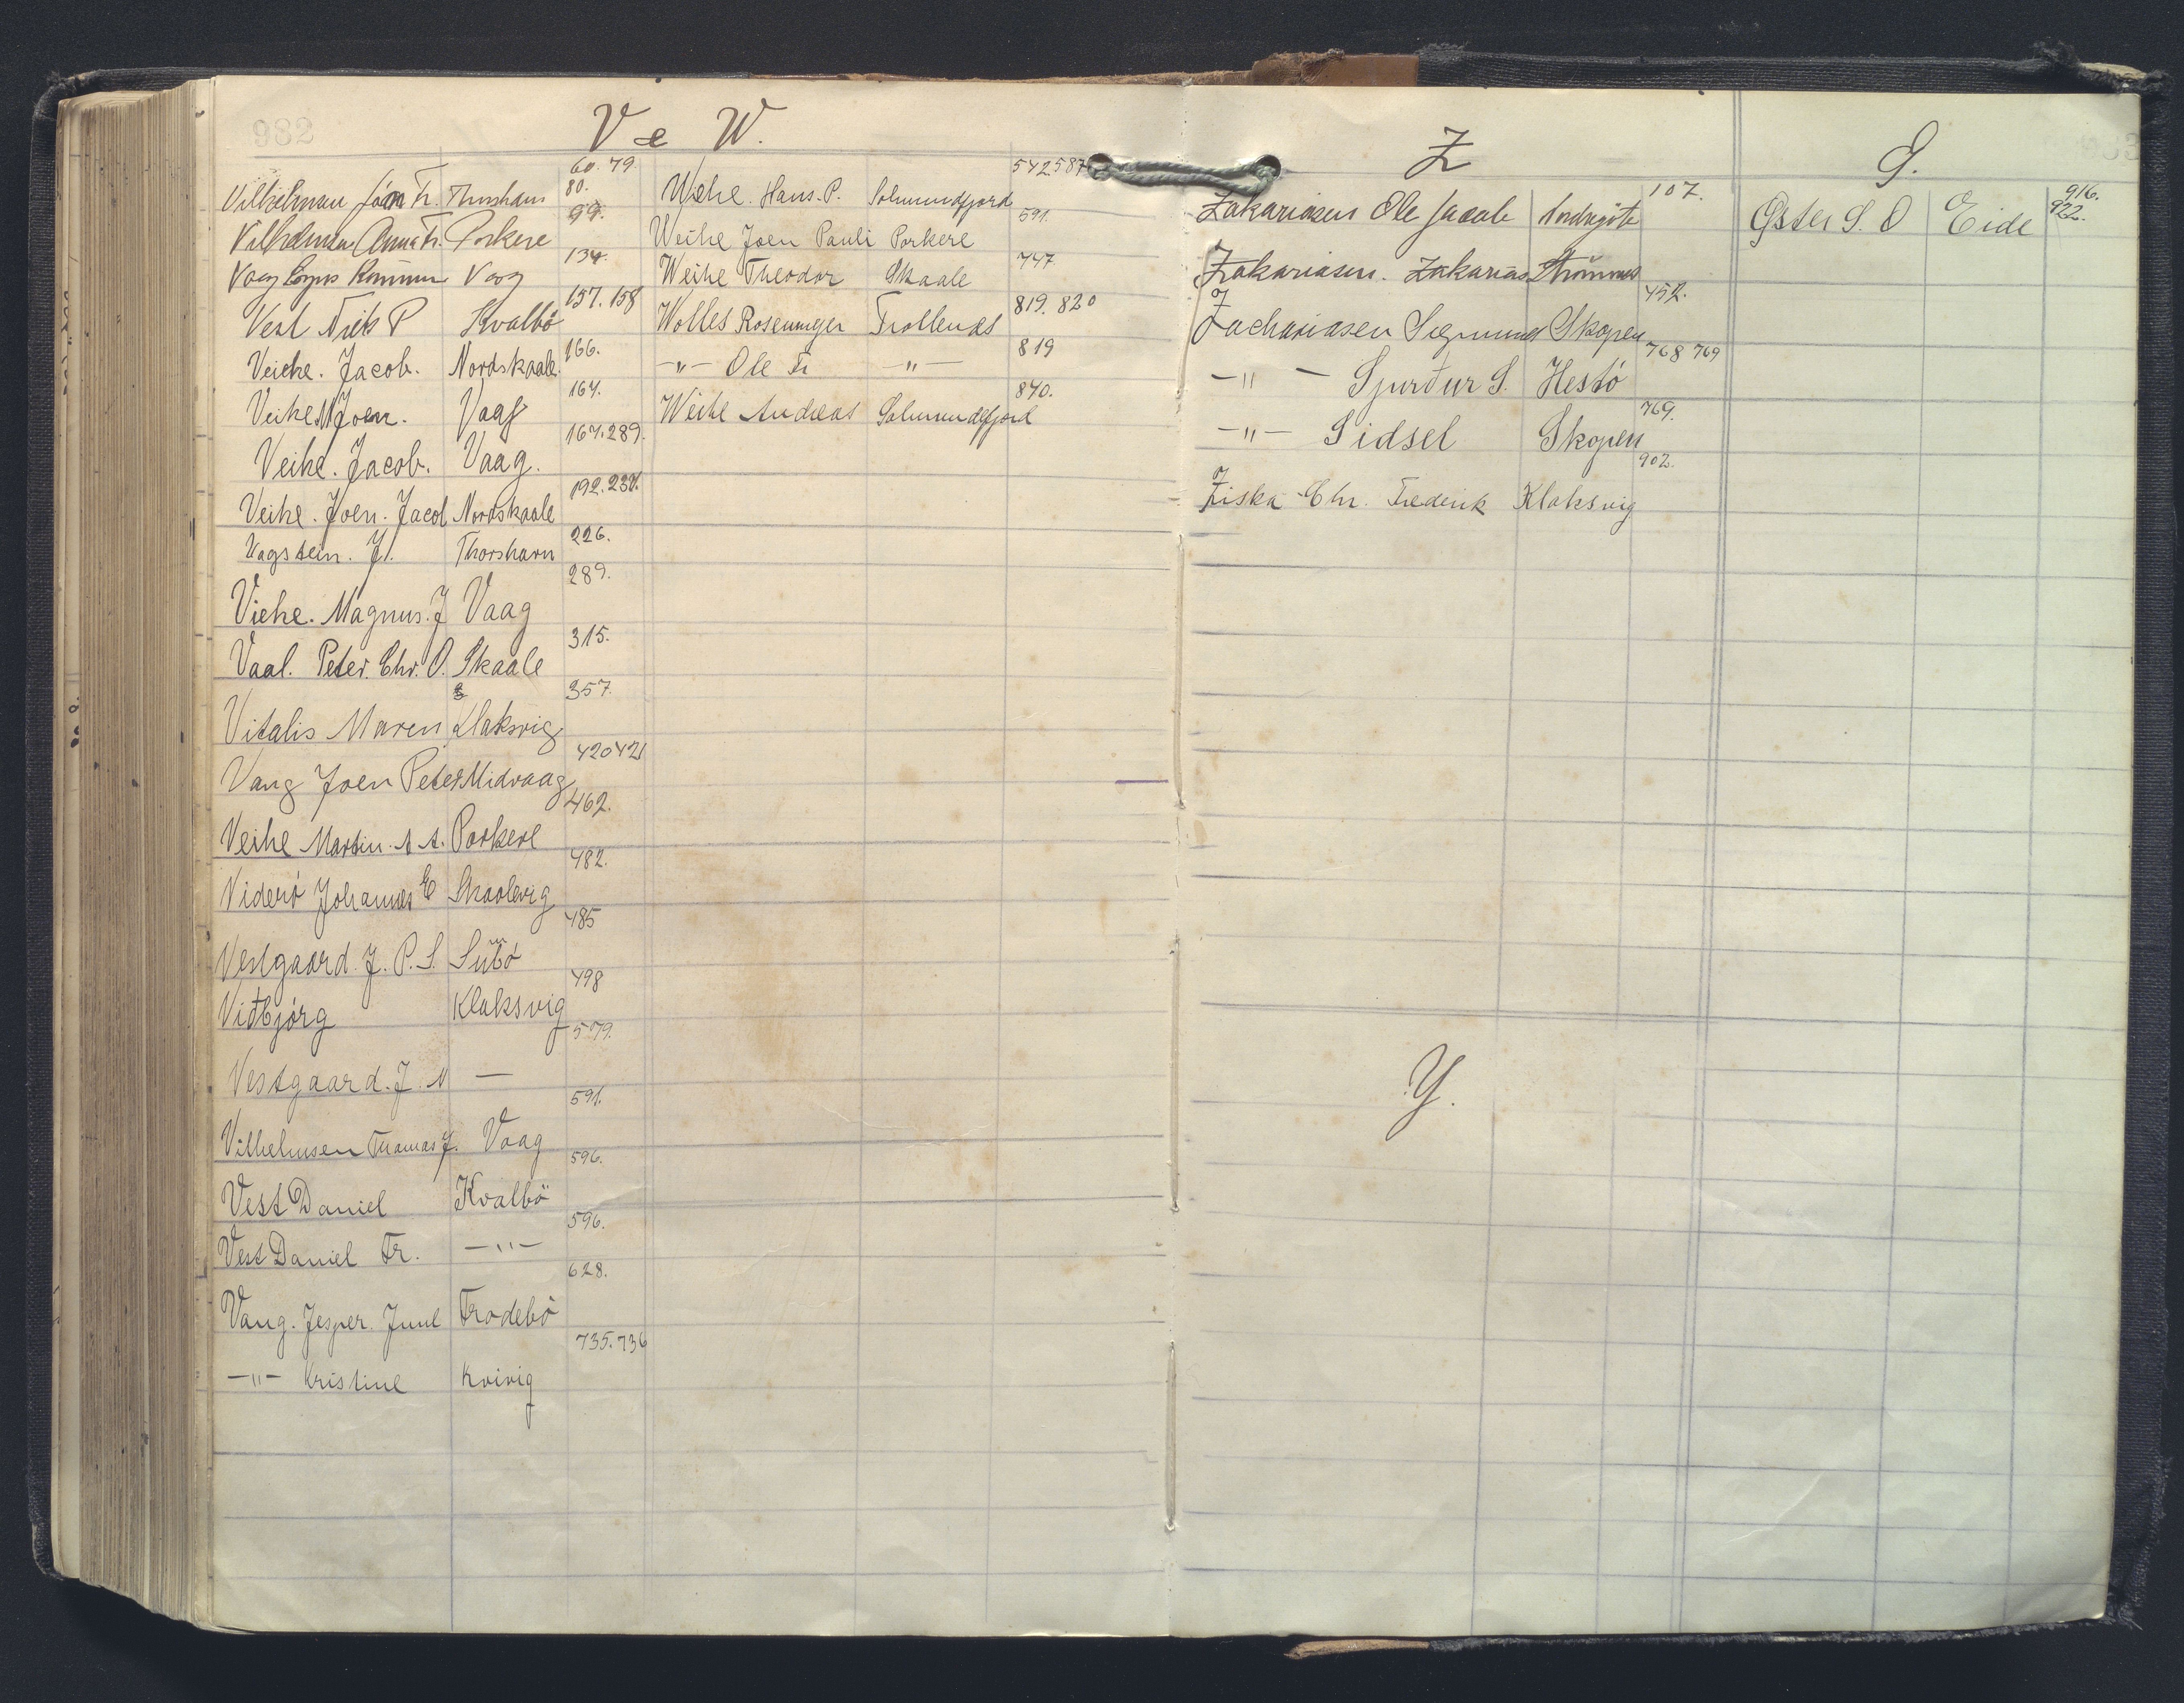 932
V e W.
60. 79.
Vilhelmsen Jóan Fr. Thorshavn 80.
Vilhelmsen Anna Fr. Porkere 99.
Vaag Vaag 134.
Vest Niels P Kvalbö 157. 158
Veiehe. Jacob. Nordskaale. 166.
Veihe M Joen. Vaag 167.
Veihe. Jacob. Vaag. 167. 289.
Veihe. Joen. Jacob Nordskaale 192. 231.
Vagstein. J. Thorshavn 226.
Viehe. Magnus. J Vaag 289.
Vaal. Peter. Chr. O. Skaale 315.
Vitalis Maren Klaksvig 357.
Vang Joen Peter Midvaag 420 421
Veihe Martin. A A. Porkere 462.
Viderö Johannes E Skaalevig 482.
Vestgaard. J. P. S. Sübö 485
Viðbjórg Klaksvig 498
Vestgaard. J. M — 579.
Vilhelmsen Thomas J. Vaag 591.
Vest Daniel Kvalbö 596.
Vest Daniel Fr. —"— 596.
Vang. Jesper. Juul Frodebö 628.
—"— Kristine Kvivig 735. 736
Weihe. Hans. P. Solmundfjord 542 587
Weihe Joen Pauli Porkere 591.
Weihe Theodor Skaale 747
Wolles Rosemnger Trollenæs 819. 820
—"— Ole Fr —"— 819
Weihe Andreas Solmundefjord 840.
Z
Zakariasen Ole Jacob Nordragöte 107.
Zakariasen. Zakarias Strömnæs
Zachariasen Siegmund Skopen 452.
—"— Sjurður S. Hestö 768 769
—"— Sidsel Skopen 769.
Ziska Chr. Frederik Klaksvig 902.
Y.
Ø.
Øster S. O Eide 916. 922.